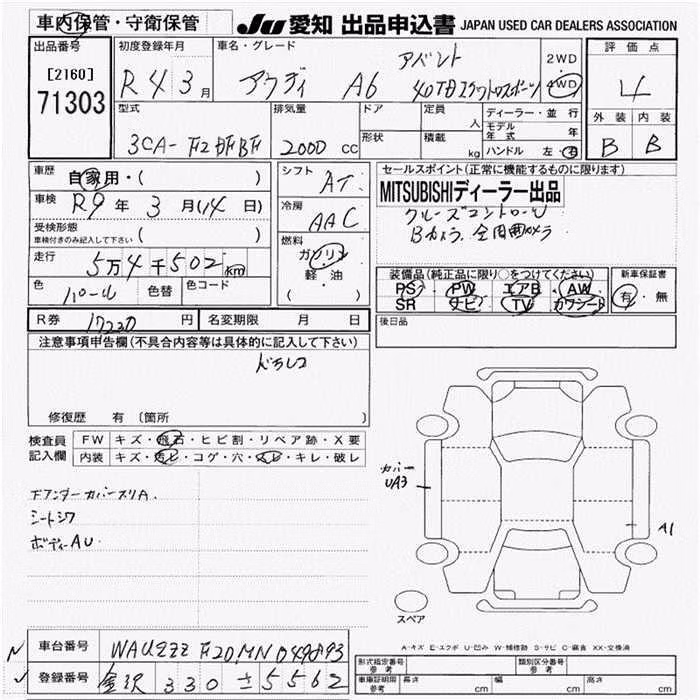 車内保管・守衛保管
JU 愛知 出品申込書 JAPAN USED CAR DEALERS ASSOCIATION
出品番号
[2160]
71303
初度登録年月
R4 3月
車名・グレード
アウディ A6
アバント
2WD
4WD
評価点
4
外装 内装
B B
型式
3CA-
排気量
2000 cc
ドア
形状
定員
人
積載
kg
ディーラー・並行
モデル年式 年
ハンドル 左・右
車歴
自家用・( )
車検
R9年 3月(14日)
受検形態
車検付きのみ記入して下さい ( )
走行
5万4千502km
色
パール
色替
色コード
シフト
AT
冷房
AAC
燃料
ガソリン
軽・油
( )
セールスポイント(正常に機能するものに限ります)
MITSUBISHIディーラー出品
クルーズコントロール
Bカメラ 全周囲カメラ
装備品(純正品に限り○をつけてください)
PS・PW・エアB・AW
SR・ナビ・TV・カワシート
新車保証書
有・無
後日品
R券 17230円
名変期限 月 日
注意事項申告欄(不具合内容等は具体的に記入して下さい)
ドラレコ
修復歴 有〔箇所
検査員
記入欄
FW キズ・飛石・ヒビ割・リペア跡・X要
内装 キズ・汚レ・コゲ・穴・スレ・キレ・破レ
下アンダーカバースリA.
シートシワ
ボディーAU.
カバー
UA3
A1
スペア
A-キズ E-エクボ U-凹み W-補修跡 S-サビ C-腐食 XX-交換済
車台番号 WAUZZZF20MN049893
登録番号 金沢 330 さ 5562
形式指定番号
参考
類別区分番号
参考
車庫証明用
参考
長さ cm 幅 cm 高さ cm